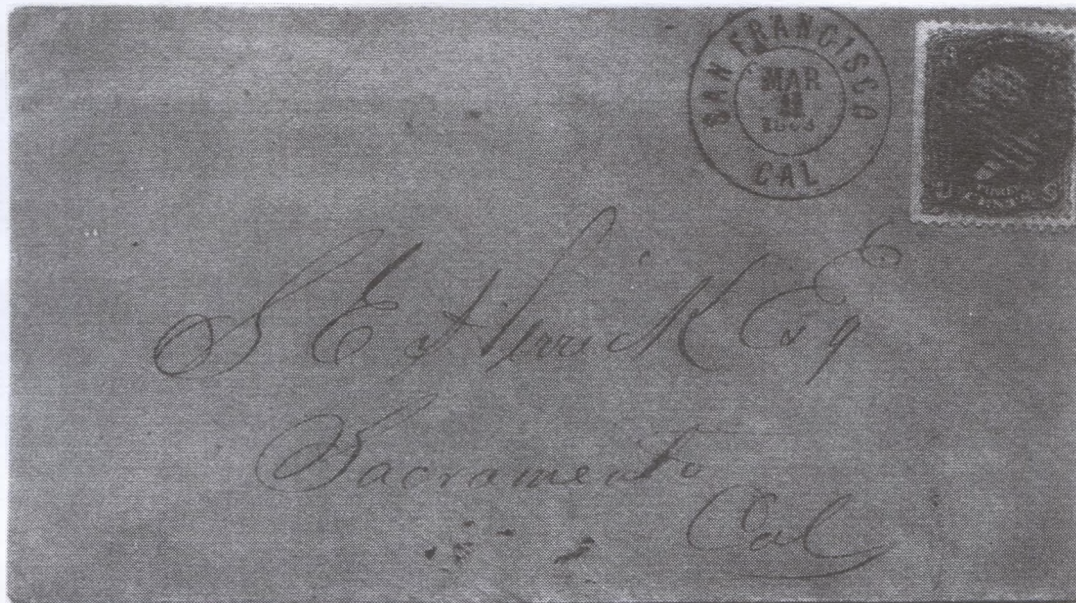 SAN FRANCISCO
MAR
CAL
THREE
CENTS
S E Herrick Esq
Sacramento
Cal